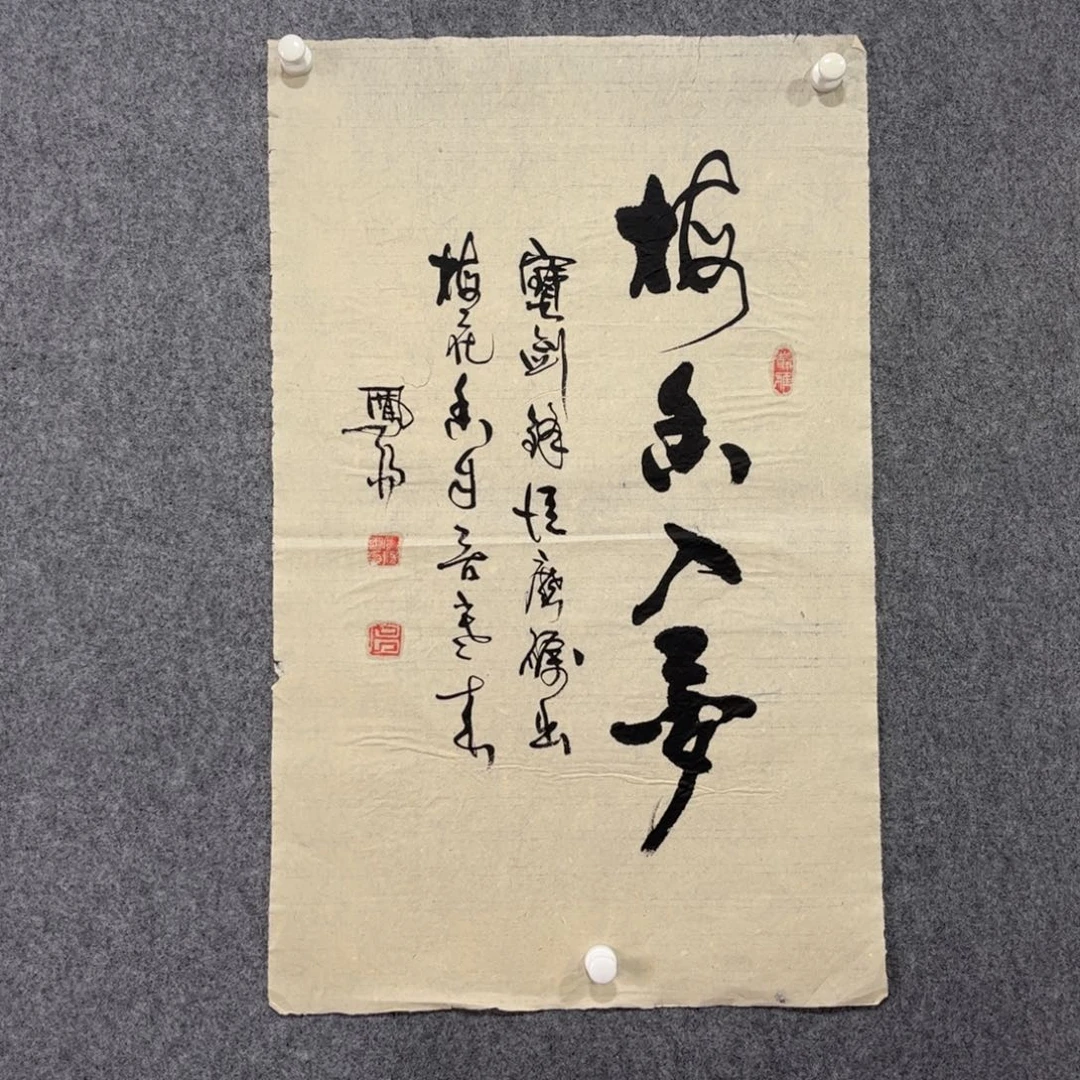 梅香入夢
寶劍鋒從磨礪出
梅花香自苦寒來